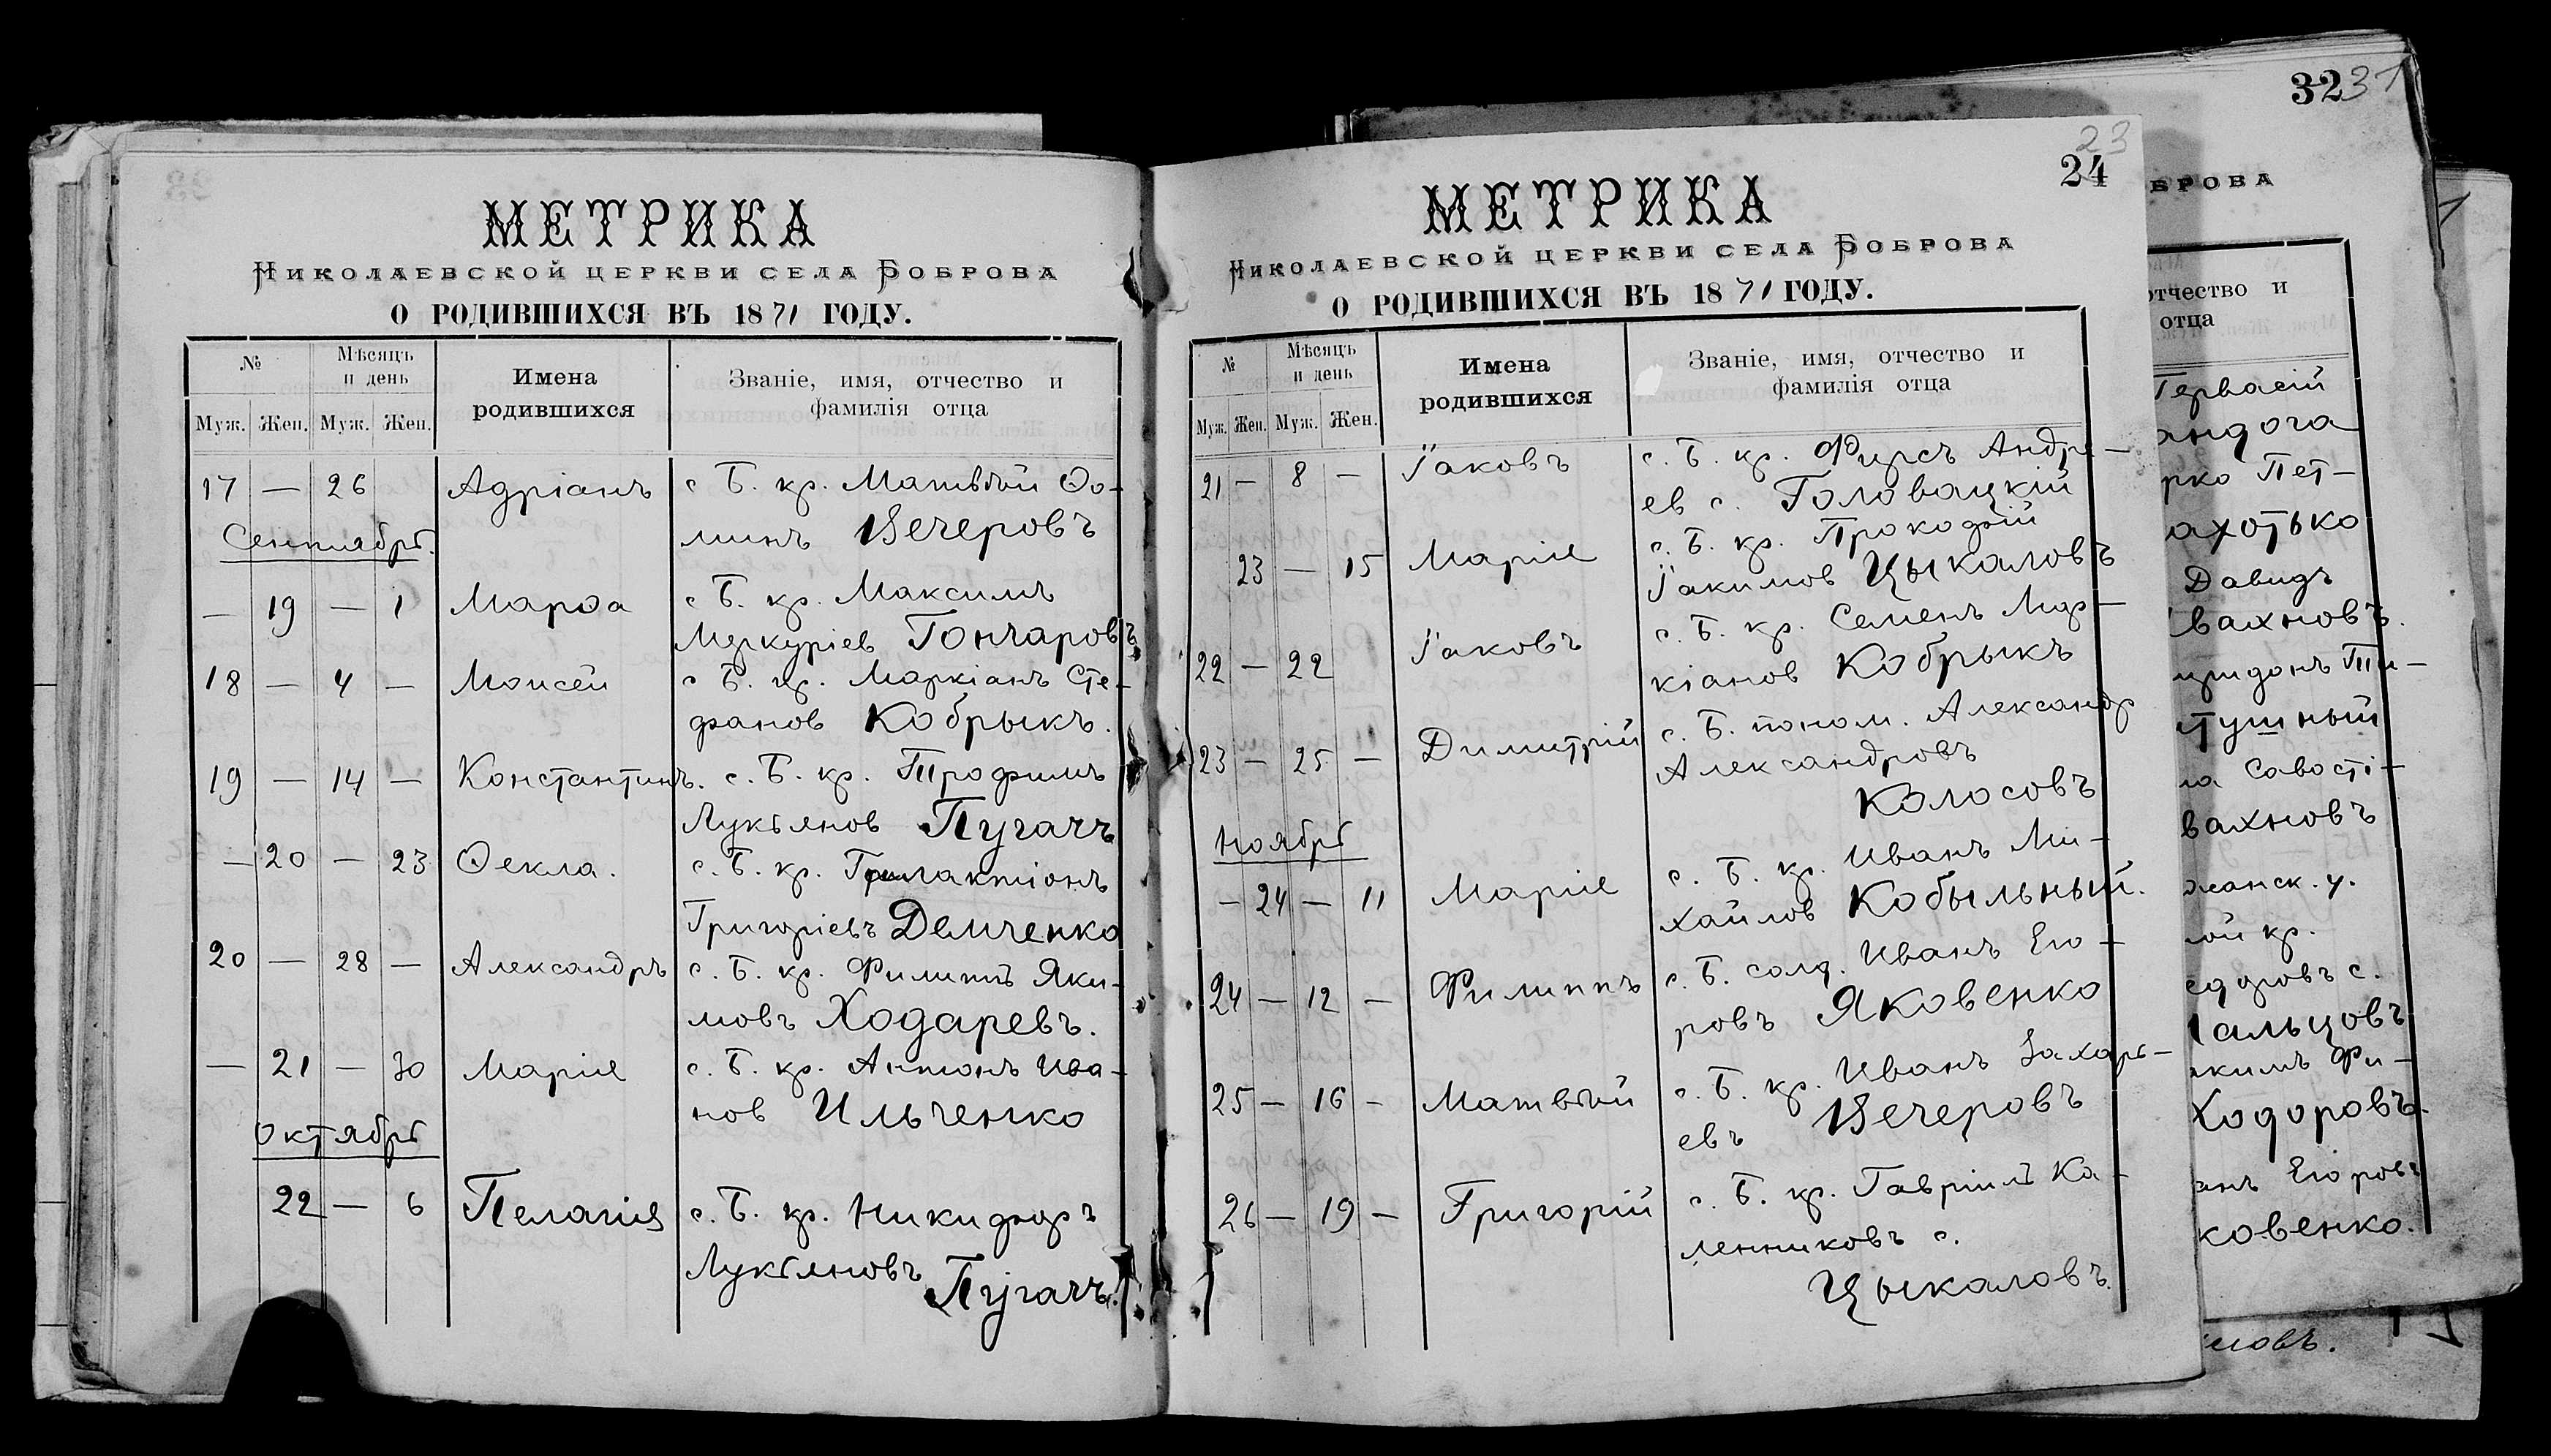 МЕТРИКА
Николаевской церкви села Боброва
О РОДИВШИХСЯ ВЪ 1871 ГОДУ.
№
Мѣсяцъ и день
Имена родившихся
Званіе, имя, отчество и фамилія отца
Муж. Жен. Муж. Жен.
17 — 26 Адріанъ с Б. кр. Матвѣй Ѳо-
минъ Вечеровъ
Сентябрь.
— 19 — 1 Марѳа с Б. кр. Максимъ
Меркуріев Гончаровъ
18 — 4 — Моисей с Б. кр. Маркіанъ Сте-
фанов Кобрыкъ.
19 — 14 — Константинъ. с. Б. кр. Трофимъ
Лукьянов Пугачъ
— 20 — 23 Ѳекла. с. Б. кр. Галактіонъ
Григоріевъ Демченко
20 — 28 — Александръ с. Б. кр. Филиппъ Яки-
мовъ Ходаревъ.
— 21 — 30 Марія с. Б. кр. Антонъ Ива-
нов Ильченко
Октябрь
22 — 6 Пелагія с. Б. кр. Никифоръ
Лукьяновъ Пугачъ.
23
24
МЕТРИКА
Николаевской церкви села Боброва
О РОДИВШИХСЯ ВЪ 1871 ГОДУ.
№
Мѣсяцъ и день
Имена родившихся
Званіе, имя, отчество и фамилія отца
Муж. Жен. Муж. Жен.
21 — 8 — Іаковъ с. Б. кр. Фирсъ Андре-
ев с. Головацкій
23 — 15 Марія с. Б. кр. Прокофій
Іакимов Цыкаловъ
22 — 22 Іаковъ с. Б. кр. Семенъ Мар-
кіанов Кобрыкъ
23 — 25 — Димитрій с. Б. поном. Александр
Александровъ
Колосовъ
Ноябрь
— 24 — 11 Марія с. Б. кр. Иванъ Ми-
хайлов Кобыльный.
24 — 12 — Филиппъ с. Б. солд. Иванъ Его-
ровъ Яковенко
25 — 16 — Матвѣй с. Б. кр. Иванъ Захарь-
евъ Вечеровъ
26 — 19 — Григорій с. Б. кр. Гавріилъ Ка-
ленниковъ с.
Цыкаловъ.
32 31
БРОВА
отчество и
отца
Гервасій
андога
рко Пет-
ахотько
Давидъ
вахновъ.
тушный
ла Савості-
вахновъ
жанск. у.
ой кр.
едоровъ с.
альцовъ
кимъ Фи-
Ходоровъ.
анъ Егоровъ
ковенко.
мовъ.